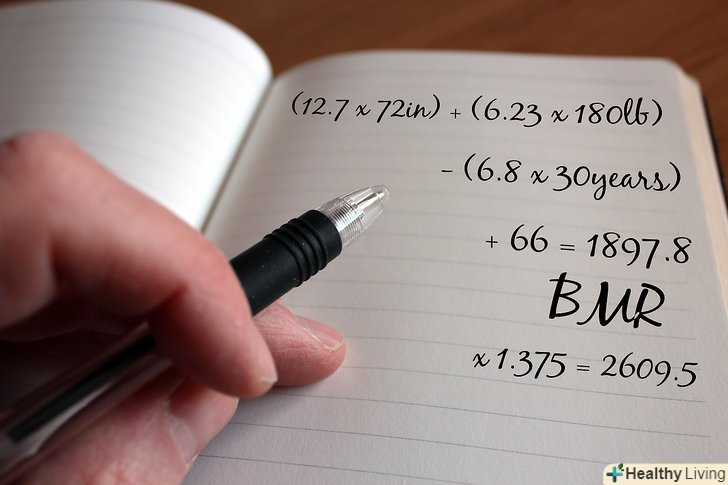 (12.7 x 72in) + (6.23 x 180lb)
- (6.8 x 30years)
+ 66 = 1897.8
BMR
x 1.375 = 2609.5
Healthy Living